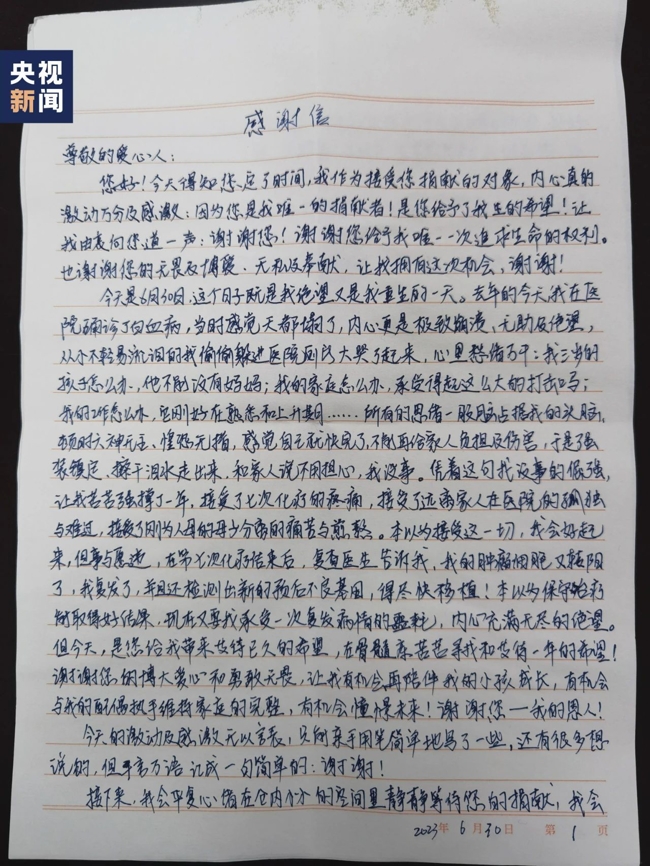 央视
新闻
感谢信
尊敬的爱心人：
您好！今天得知您定了时间，我作为接受您捐献的对象，内心真的
激动万分及感激：因为您是我唯一的捐献者！是您给予了我生的希望！让
我由衷向您道一声：谢谢您！谢谢您给予我唯一一次追求生命的权利。
也谢谢您的无畏及博爱、无私及奉献，让我拥有这次机会，谢谢！
今天是6月30日，这个日子既是我绝望又是我重生的一天。去年的今天，我在医
院确诊了白血病，当时感觉天都塌了，内心更是极致崩溃，无助及绝望，
从小不轻易流泪的我偷偷躲进医院厕所大哭了起来，心里愁绪万千：我三岁的
孩子怎么办，他不能没有妈妈；我的家庭怎么办，承受得起这么大的打击吗；
我的工作怎么办，它刚好在熟悉和上升期……所有的思绪一股脑占据我的头脑，
顿时六神无主、惶恐无措，感觉自己就快完了，不能再给家人负担及伤害，于是强
装镇定、擦干泪水走出来，和家人说不用担心，我没事。凭着这句我没事的倔强，
让我苦苦强撑了一年，接受了七次化疗的疼痛，接受了远离家人在医院的孤独
与难过，接受了刚为人母的母少分离的痛苦与煎熬。本以为接受这一切，我会好起
来，但事与愿违，在第七次化疗结束后，复查医生告诉我，我的肿瘤细胞又转阳
了，我复发了，并且还检测出新的预后不良基因，得尽快移植！本以为保守治疗
能取得好结果，现在又要我承受一次复发病情的噩耗，内心充满无尽的绝望。
但今天，是您给我带来及待已久的希望，在骨髓库苦苦寻找和等待一年的希望！
谢谢您的博大爱心和勇敢无畏，让我有机会再陪伴我的小孩成长，有机会
与我的配偶执手维持家庭的完整，有机会憧憬未来！谢谢您一我的恩人！
今天的激动及感激无以言表，只能亲手用笔简单地写了一些，还有很多想
说的，但千言万语汇成一句简单的：谢谢！
接下来，我会平复心绪在仓内个分的空间里静静等待您的捐献，我会
2023年 6月30日 第 1 页